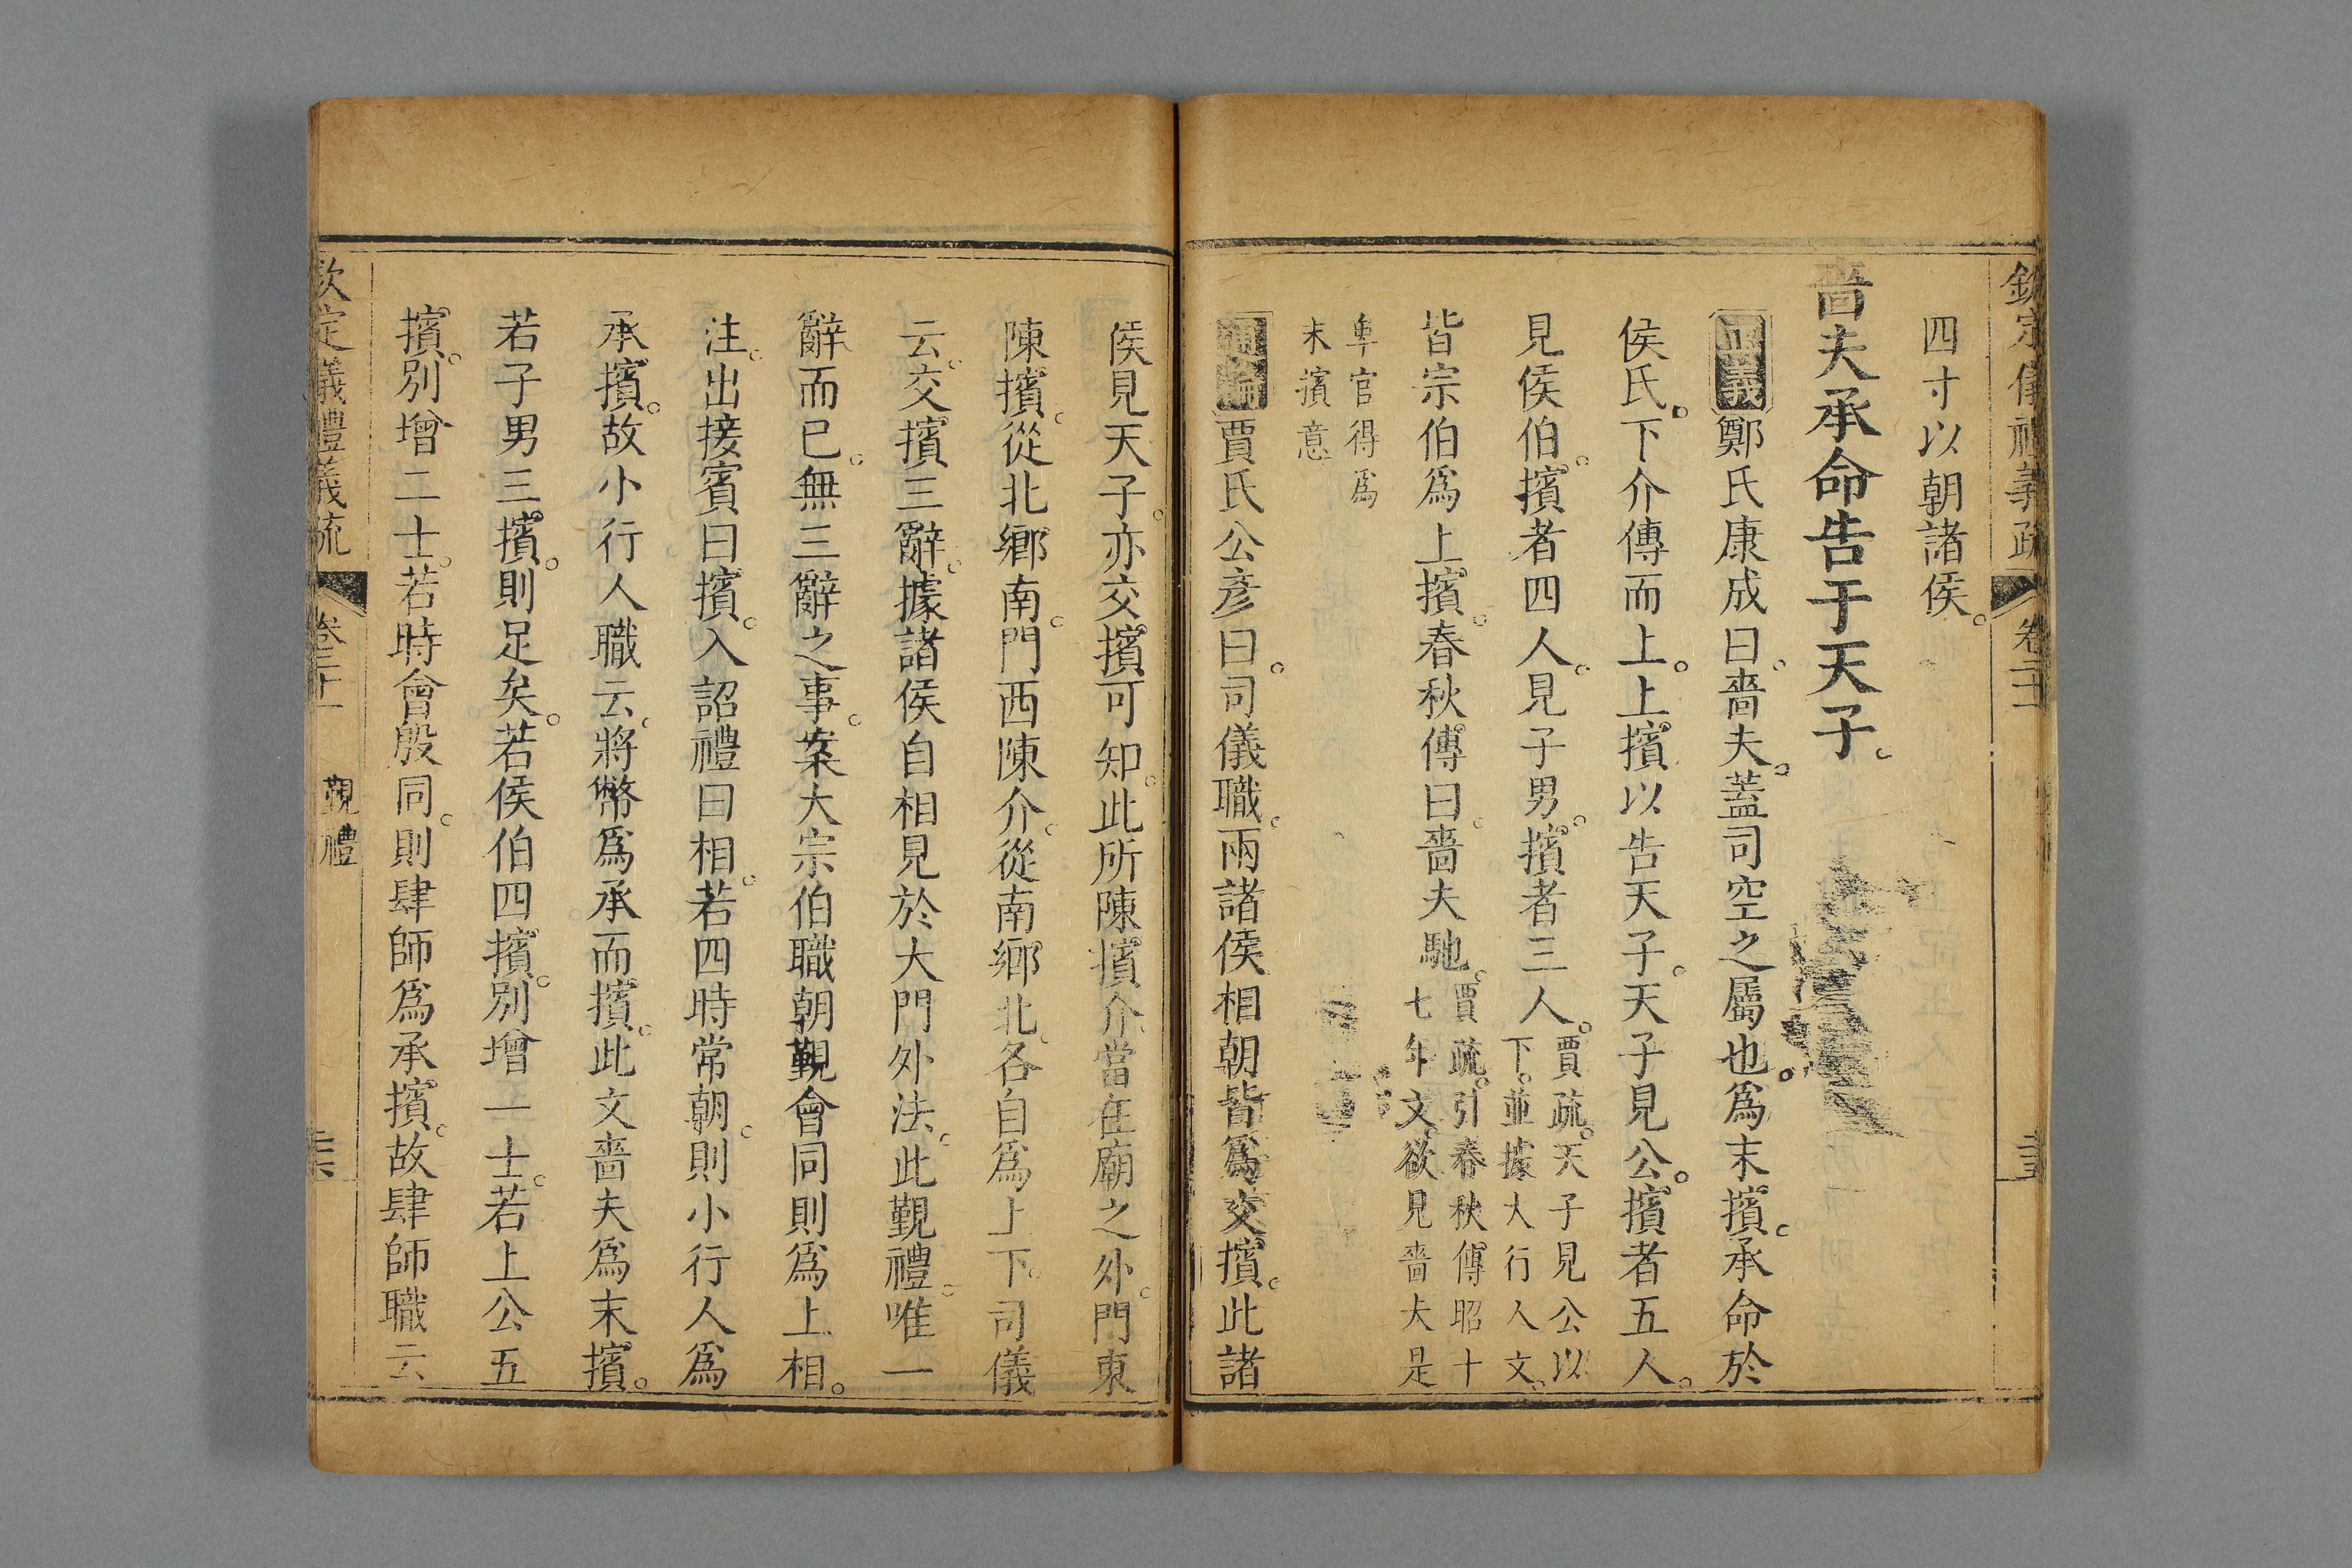 欽定儀禮義疏 卷二十一
四寸以朝諸侯。
嗇夫承命告于天子。
正義鄭氏康成曰。嗇夫。蓋司空之屬也。爲末擯。承命於
侯氏。下介傳而上。上擯以告天子。天子見公。擯者五人。
見侯伯。擯者四人。見子男。擯者三人。賈疏。天子見公以
下。並據大行人文。
皆宗伯爲上擯。春秋傳曰。嗇夫馳。賈疏。引春秋傳昭十
七年文。欲見嗇夫是
卑官得爲
末擯意
通論賈氏公彥曰。司儀職。兩諸侯相朝皆爲交擯。此諸
侯見天子。亦交擯可知。此所陳擯介。當在廟之外。門東
陳擯。從北鄉南。門西陳介。從南鄉北。各自爲上下。司儀
云。交擯三辭。據諸侯自相見於大門外法。此覲禮。唯一
辭而已。無三辭之事。案大宗伯職朝覲會同則爲上相。
注。出接賓曰擯。入詔禮曰相。若四時常朝。則小行人爲
承擯。故小行人職云。將幣爲承而擯。此文嗇夫爲末擯。
若子男三擯。則足矣。若侯伯四擯。別增一士。若上公五
擯。別增二士。若時會殷同。則肆師爲承擯。故肆師職云
欽定儀禮義疏 卷二十一 覲禮